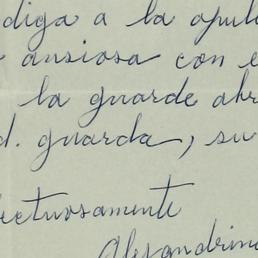 diga a la
ansiosa con
la guarde
d. guarda, su
ectuosamente
Alejandrin